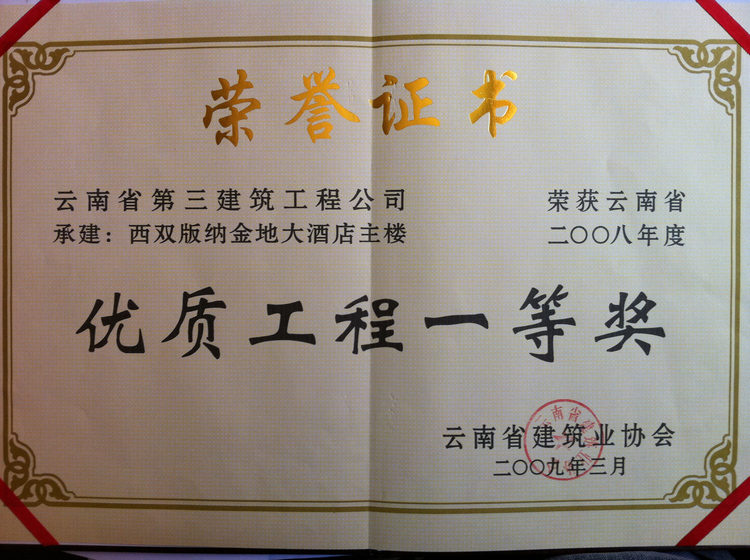 荣誉证书
云南省第三建筑工程公司
承建：西双版纳金地大酒店主楼
荣获云南省
二〇〇八年度
优质工程一等奖
云南省建筑业协会
二〇〇九年三月